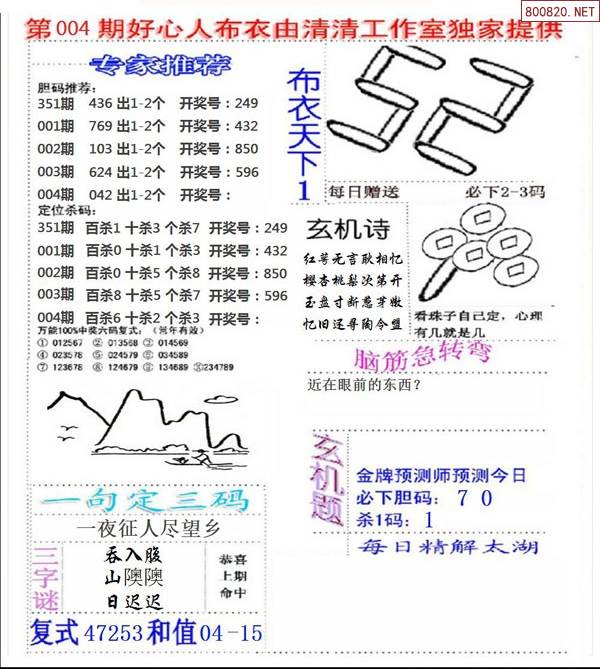 800820.NET
第004期好心人布衣由清清工作室独家提供
专家推荐
胆码推荐:
351期 436出1-2个 开奖号:249
001期 769出1-2个 开奖号:432
002期 103出1-2个 开奖号:850
003期 624出1-2个 开奖号:596
004期 042出1-2个 开奖号:
定位杀码:
351期 百杀1 十杀3 个杀7 开奖号:249
001期 百杀0 十杀1 个杀3 开奖号:432
002期 百杀0 十杀5 个杀8 开奖号:850
003期 百杀8 十杀5 个杀7 开奖号:596
004期 百杀6 十杀2 个杀3 开奖号:
万能100%中奖六码复式:(常年有效)
① 012567 ② 013568 ③ 014569
④ 023578 ⑤ 024579 ⑥ 034589
⑦ 123678 ⑧ 124679 ⑨ 134689 ⑩234789
布衣天下1
52
每日赠送 必下2-3码
玄机诗
红萼无言耿相忆
樱杏桃梨次第开
玉盘寸断葱芽嫩
忆旧还寻陶令盟
看珠子自己定,心理
有几就是几
脑筋急转弯
近在眼前的东西?
玄机题
金牌预测师预测今日
必下胆码:70
杀1码:1
每日精解太湖
一句定三码
一夜征人尽望乡
三字谜
吞入腹
山隩隩
日迟迟
恭喜
上期
命中
复式47253和值04-15